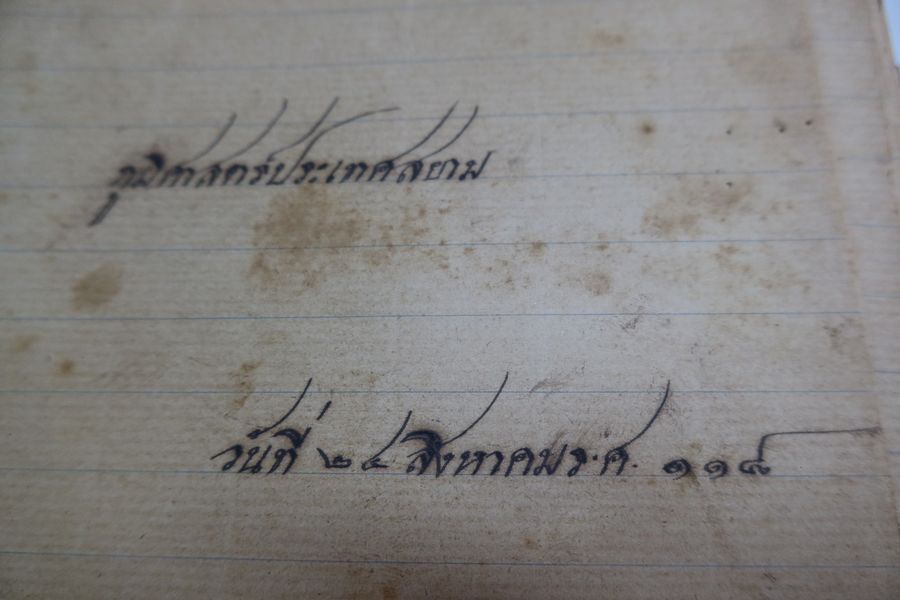 ภูมิศาสตร์ประเทศสยาม
วันที่ ๒๔ สิงหาคม ร.ศ. ๑๑๘